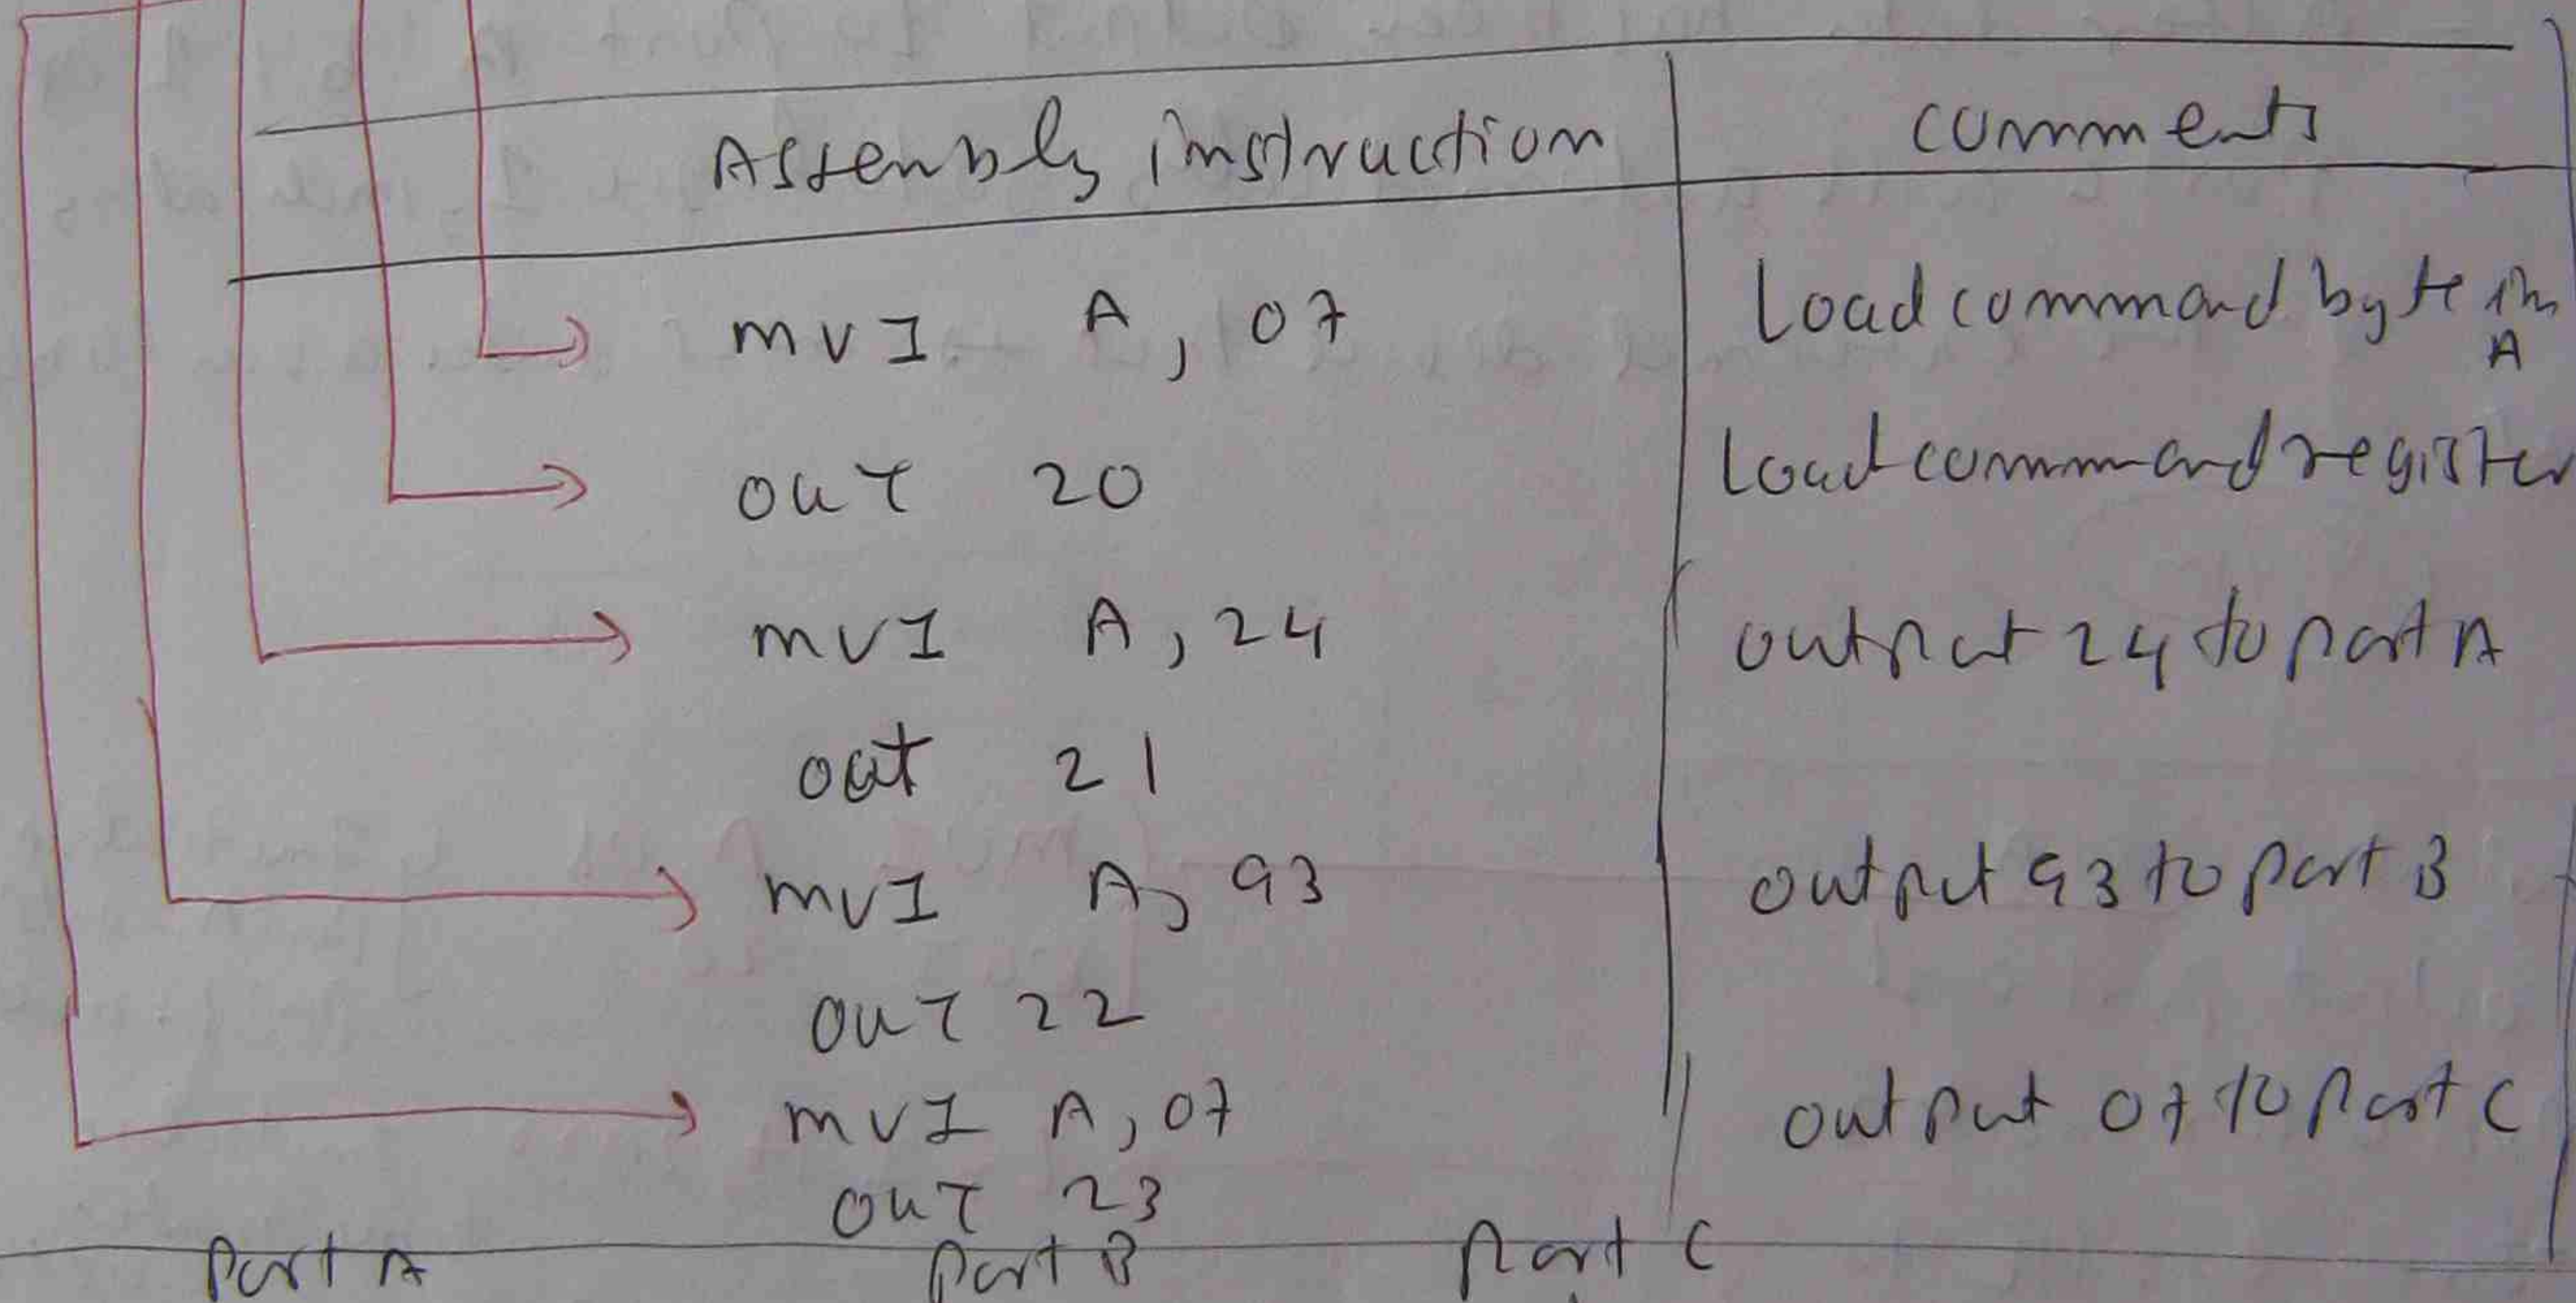 Assembly instruction comments
mvI A, 07 Load command byte in A
ouT 20 Load command register
mvI A, 24 output 24 to port A
out 21
mvI A, 93 output 93 to port B
ouT 22
mvI A, 07 output 07 to port C
ouT 23
port A port B port C